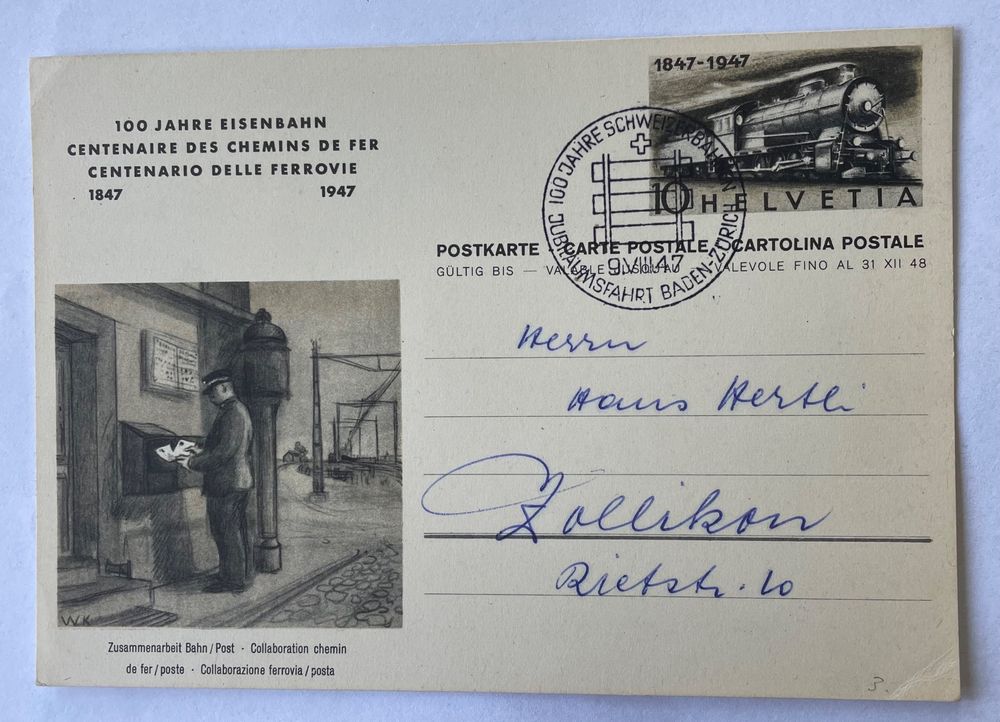 100 JAHRE EISENBAHN
CENTENAIRE DES CHEMINS DE FER
CENTENARIO DELLE FERROVIE
1847 1947
1847-1947
10 HELVETIA
100 JAHRE SCHWEIZERBAHNEN
JUBILÄUMSFAHRT BADEN-ZÜRICH
9.VIII.47
POSTKARTE - CARTE POSTALE - CARTOLINA POSTALE
GÜLTIG BIS — VALABLE JUSQU'AU — VALEVOLE FINO AL 31 XII 48
Herrn
Hans Hertli
Zollikon
Rietstr. 10
WK
Zusammenarbeit Bahn / Post · Collaboration chemin
de fer / poste · Collaborazione ferrovia / posta
3.